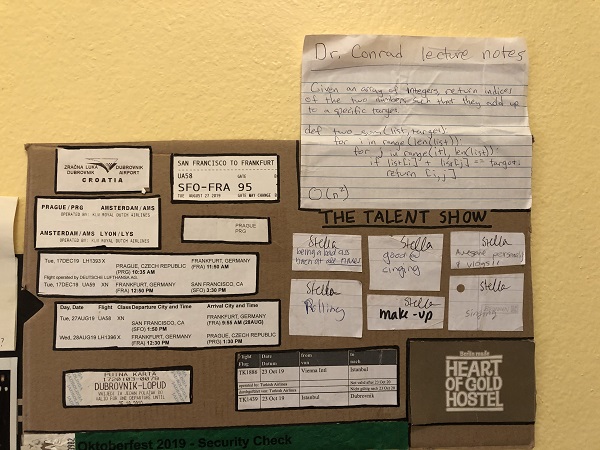 Dr. Conrad lecture notes
Given an array of integers, return indices
of the two numbers such that they add up
to a specific target.
def two_sum(list, target)
for i in range(len(list)):
for j in range(i+1, len(list))
if list[i] + list[j] == target:
return [i, j]
O(n²)
ZRAČNA LUKA DUBROVNIK
DUBROVNIK AIRPORT
CROATIA
SAN FRANCISCO TO FRANKFURT
UA58
SFO-FRA 95
TUE AUGUST 27 2019 GATE MAY CHANGE
PRAGUE/PRG AMSTERDAM/AMS
OPERATED BY: KLM ROYAL DUTCH AIRLINES
AMSTERDAM/AMS LYON/LYS
OPERATED BY: KLM ROYAL DUTCH AIRLINES
PRAGUE
PRG
Tue, 17DEC19 LH1393 X PRAGUE, CZECH REPUBLIC FRANKFURT, GERMANY
(PRG) 10:35 AM (FRA) 11:50 AM
Flight operated by DEUTSCHE LUFTHANSA AG.
Tue, 17DEC19 UA59 XN FRANKFURT, GERMANY SAN FRANCISCO, CA
(FRA) 12:50 PM (SFO) 3:30 PM
Day, Date Flight Class Departure City and Time Arrival City and Time
Tue, 27AUG19 UA58 XN SAN FRANCISCO, CA FRANKFURT, GERMANY
(SFO) 1:50 PM (FRA) 9:55 AM (28AUG)
Wed, 28AUG19 LH1396 X FRANKFURT, GERMANY PRAGUE, CZECH REPUBLIC
(FRA) 12:30 PM (PRG) 1:30 PM
PUTNA KARTA
DUBROVNIK-LOPUD
VRIJEDI ZA JEDAN POLAZAK DO
VALID FOR ONE DEPARTURE UNTIL
THE TALENT SHOW
Stella
being a bad ass
Stella
good @
singing
Stella
Awesome personality
& vlogs!!
Stella
Potting
Stella
make-up
Stella
singing
Flight Date from to
Flug Datum von nach
TK1886 23 Oct 19 Vienna Intl Istanbul
operated by: Turkish Airlines
durchgeführt von: Turkish Airlines
Not valid after 23 Oct 20
Nicht gültig nach 23 Oct 20
TK1439 23 Oct 19 Istanbul Dubrovnik
Berlin made
HEART
OF GOLD
HOSTEL
Oktoberfest 2019 - Security Check